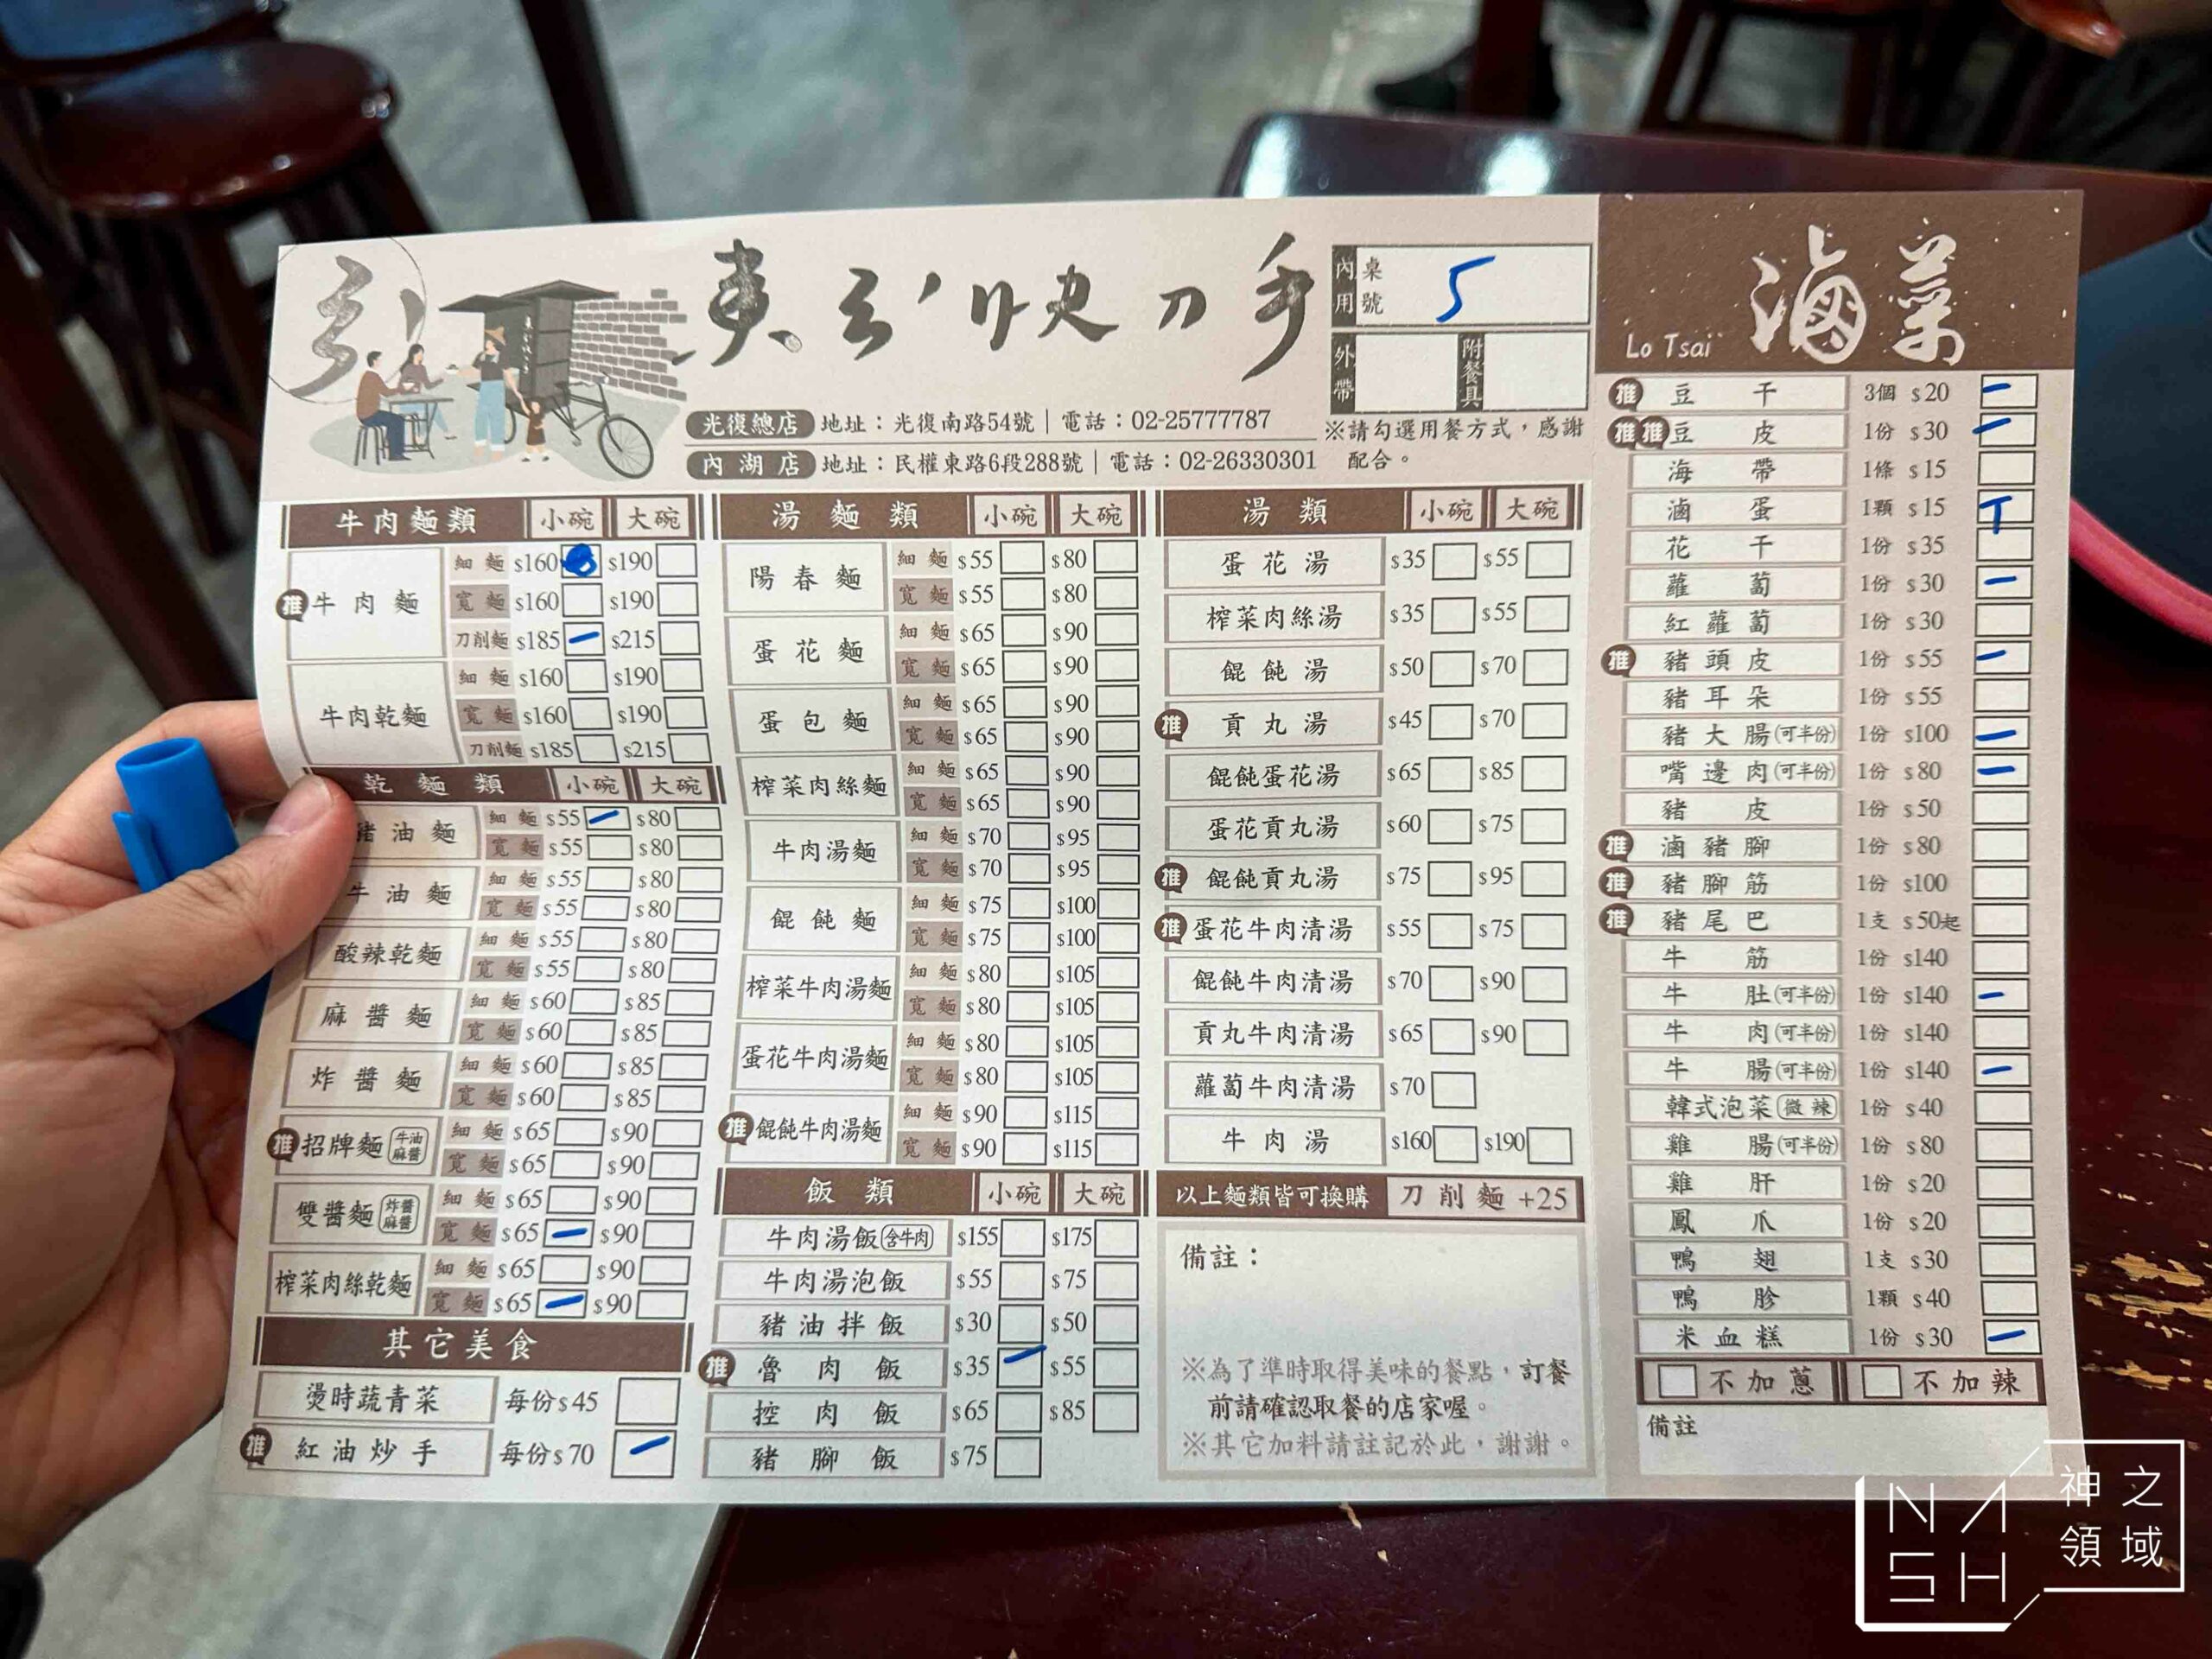 東引快刀手
內用 桌號 5
外帶 附餐具
光復總店 地址：光復南路54號｜電話：02-25777787
內湖店 地址：民權東路6段288號｜電話：02-26330301
※請勾選用餐方式，感謝
配合。
牛肉麵類 小碗 大碗
推 牛肉麵 細麵 $160 $190
寬麵 $160 $190
刀削麵 $185 一 $215
牛肉乾麵 細麵 $160 $190
寬麵 $160 $190
刀削麵 $185 $215
乾麵類 小碗 大碗
豬油麵 細麵 $55 一 $80
寬麵 $55 $80
牛油麵 細麵 $55 $80
寬麵 $55 $80
酸辣乾麵 細麵 $55 $80
寬麵 $55 $80
麻醬麵 細麵 $60 $85
寬麵 $60 $85
炸醬麵 細麵 $60 $85
寬麵 $60 $85
推 招牌麵 牛油麻醬 細麵 $65 $90
寬麵 $65 $90
雙醬麵 炸醬麻醬 細麵 $65 $90
寬麵 $65 一 $90
榨菜肉絲乾麵 細麵 $65 $90
寬麵 $65 一 $90
其它美食
燙時蔬青菜 每份$45
推 紅油炒手 每份$70 一
湯麵類 小碗 大碗
陽春麵 細麵 $55 $80
寬麵 $55 $80
蛋花麵 細麵 $65 $90
寬麵 $65 $90
蛋包麵 細麵 $65 $90
寬麵 $65 $90
榨菜肉絲麵 細麵 $65 $90
寬麵 $65 $90
牛肉湯麵 細麵 $70 $95
寬麵 $70 $95
餛飩麵 細麵 $75 $100
寬麵 $75 $100
榨菜牛肉湯麵 細麵 $80 $105
寬麵 $80 $105
蛋花牛肉湯麵 細麵 $80 $105
寬麵 $80 $105
推 餛飩牛肉湯麵 細麵 $90 $115
寬麵 $90 $115
飯類 小碗 大碗
牛肉湯飯(含牛肉) $155 $175
牛肉湯泡飯 $55 $75
豬油拌飯 $30 $50
推 魯肉飯 $35 一 $55
控肉飯 $65 $85
豬腳飯 $75
湯類 小碗 大碗
蛋花湯 $35 $55
榨菜肉絲湯 $35 $55
餛飩湯 $50 $70
推 貢丸湯 $45 $70
餛飩蛋花湯 $65 $85
蛋花貢丸湯 $60 $75
推 餛飩貢丸湯 $75 $95
推 蛋花牛肉清湯 $55 $75
餛飩牛肉清湯 $70 $90
貢丸牛肉清湯 $65 $90
蘿蔔牛肉清湯 $70
牛肉湯 $160 $190
以上麵類皆可換購 刀削麵 +25
備註：
※為了準時取得美味的餐點，訂餐
前請確認取餐的店家喔。
※其它加料請註記於此，謝謝。
滷菜
Lo Tsai
推 豆干 3個 $20 一
推 推 豆皮 1份 $30 一
海帶 1條 $15
滷蛋 1顆 $15 T
花干 1份 $35
蘿蔔 1份 $30 一
紅蘿蔔 1份 $30
推 豬頭皮 1份 $55 一
豬耳朵 1份 $55
豬大腸(可半份) 1份 $100 一
嘴邊肉(可半份) 1份 $80 一
豬皮 1份 $50
推 滷豬腳 1份 $80
推 豬腳筋 1份 $100
推 豬尾巴 1支 $50起
牛筋 1份 $140
牛肚(可半份) 1份 $140 一
牛肉(可半份) 1份 $140
牛腸(可半份) 1份 $140 一
韓式泡菜 微辣 1份 $40
雞腸(可半份) 1份 $80
雞肝 1份 $20
鳳爪 1份 $20
鴨翅 1支 $30
鴨胗 1顆 $40
米血糕 1份 $30 一
不加蔥 不加辣
備註
NASH 神之領域